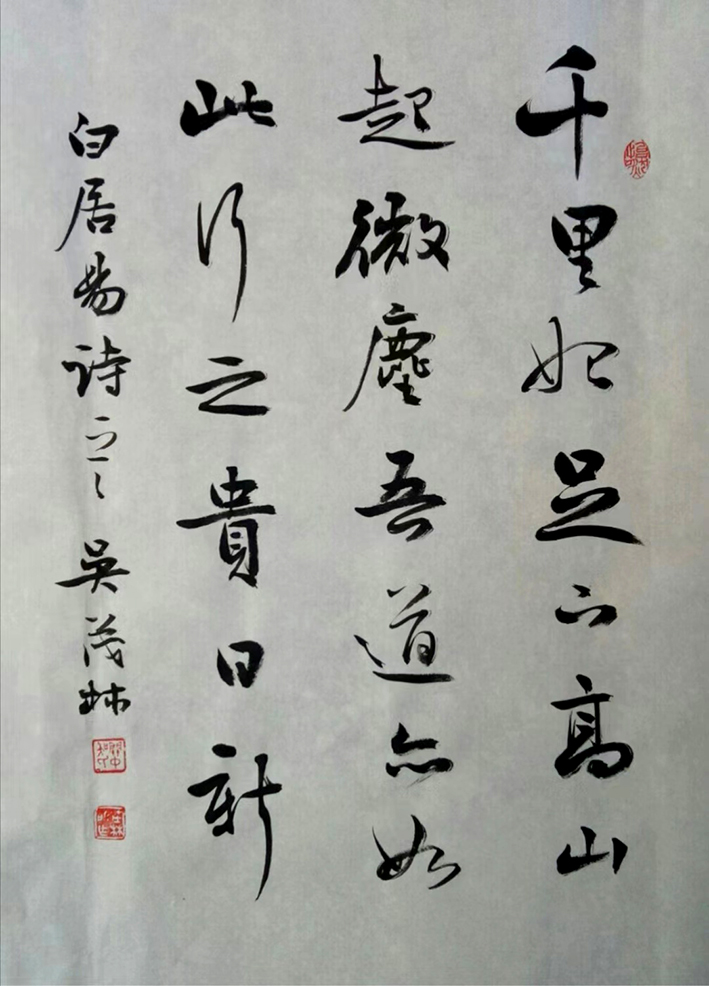 千里始足下高山
起微塵吾道亦如
此行之貴日新
白居易詩 吴茂林